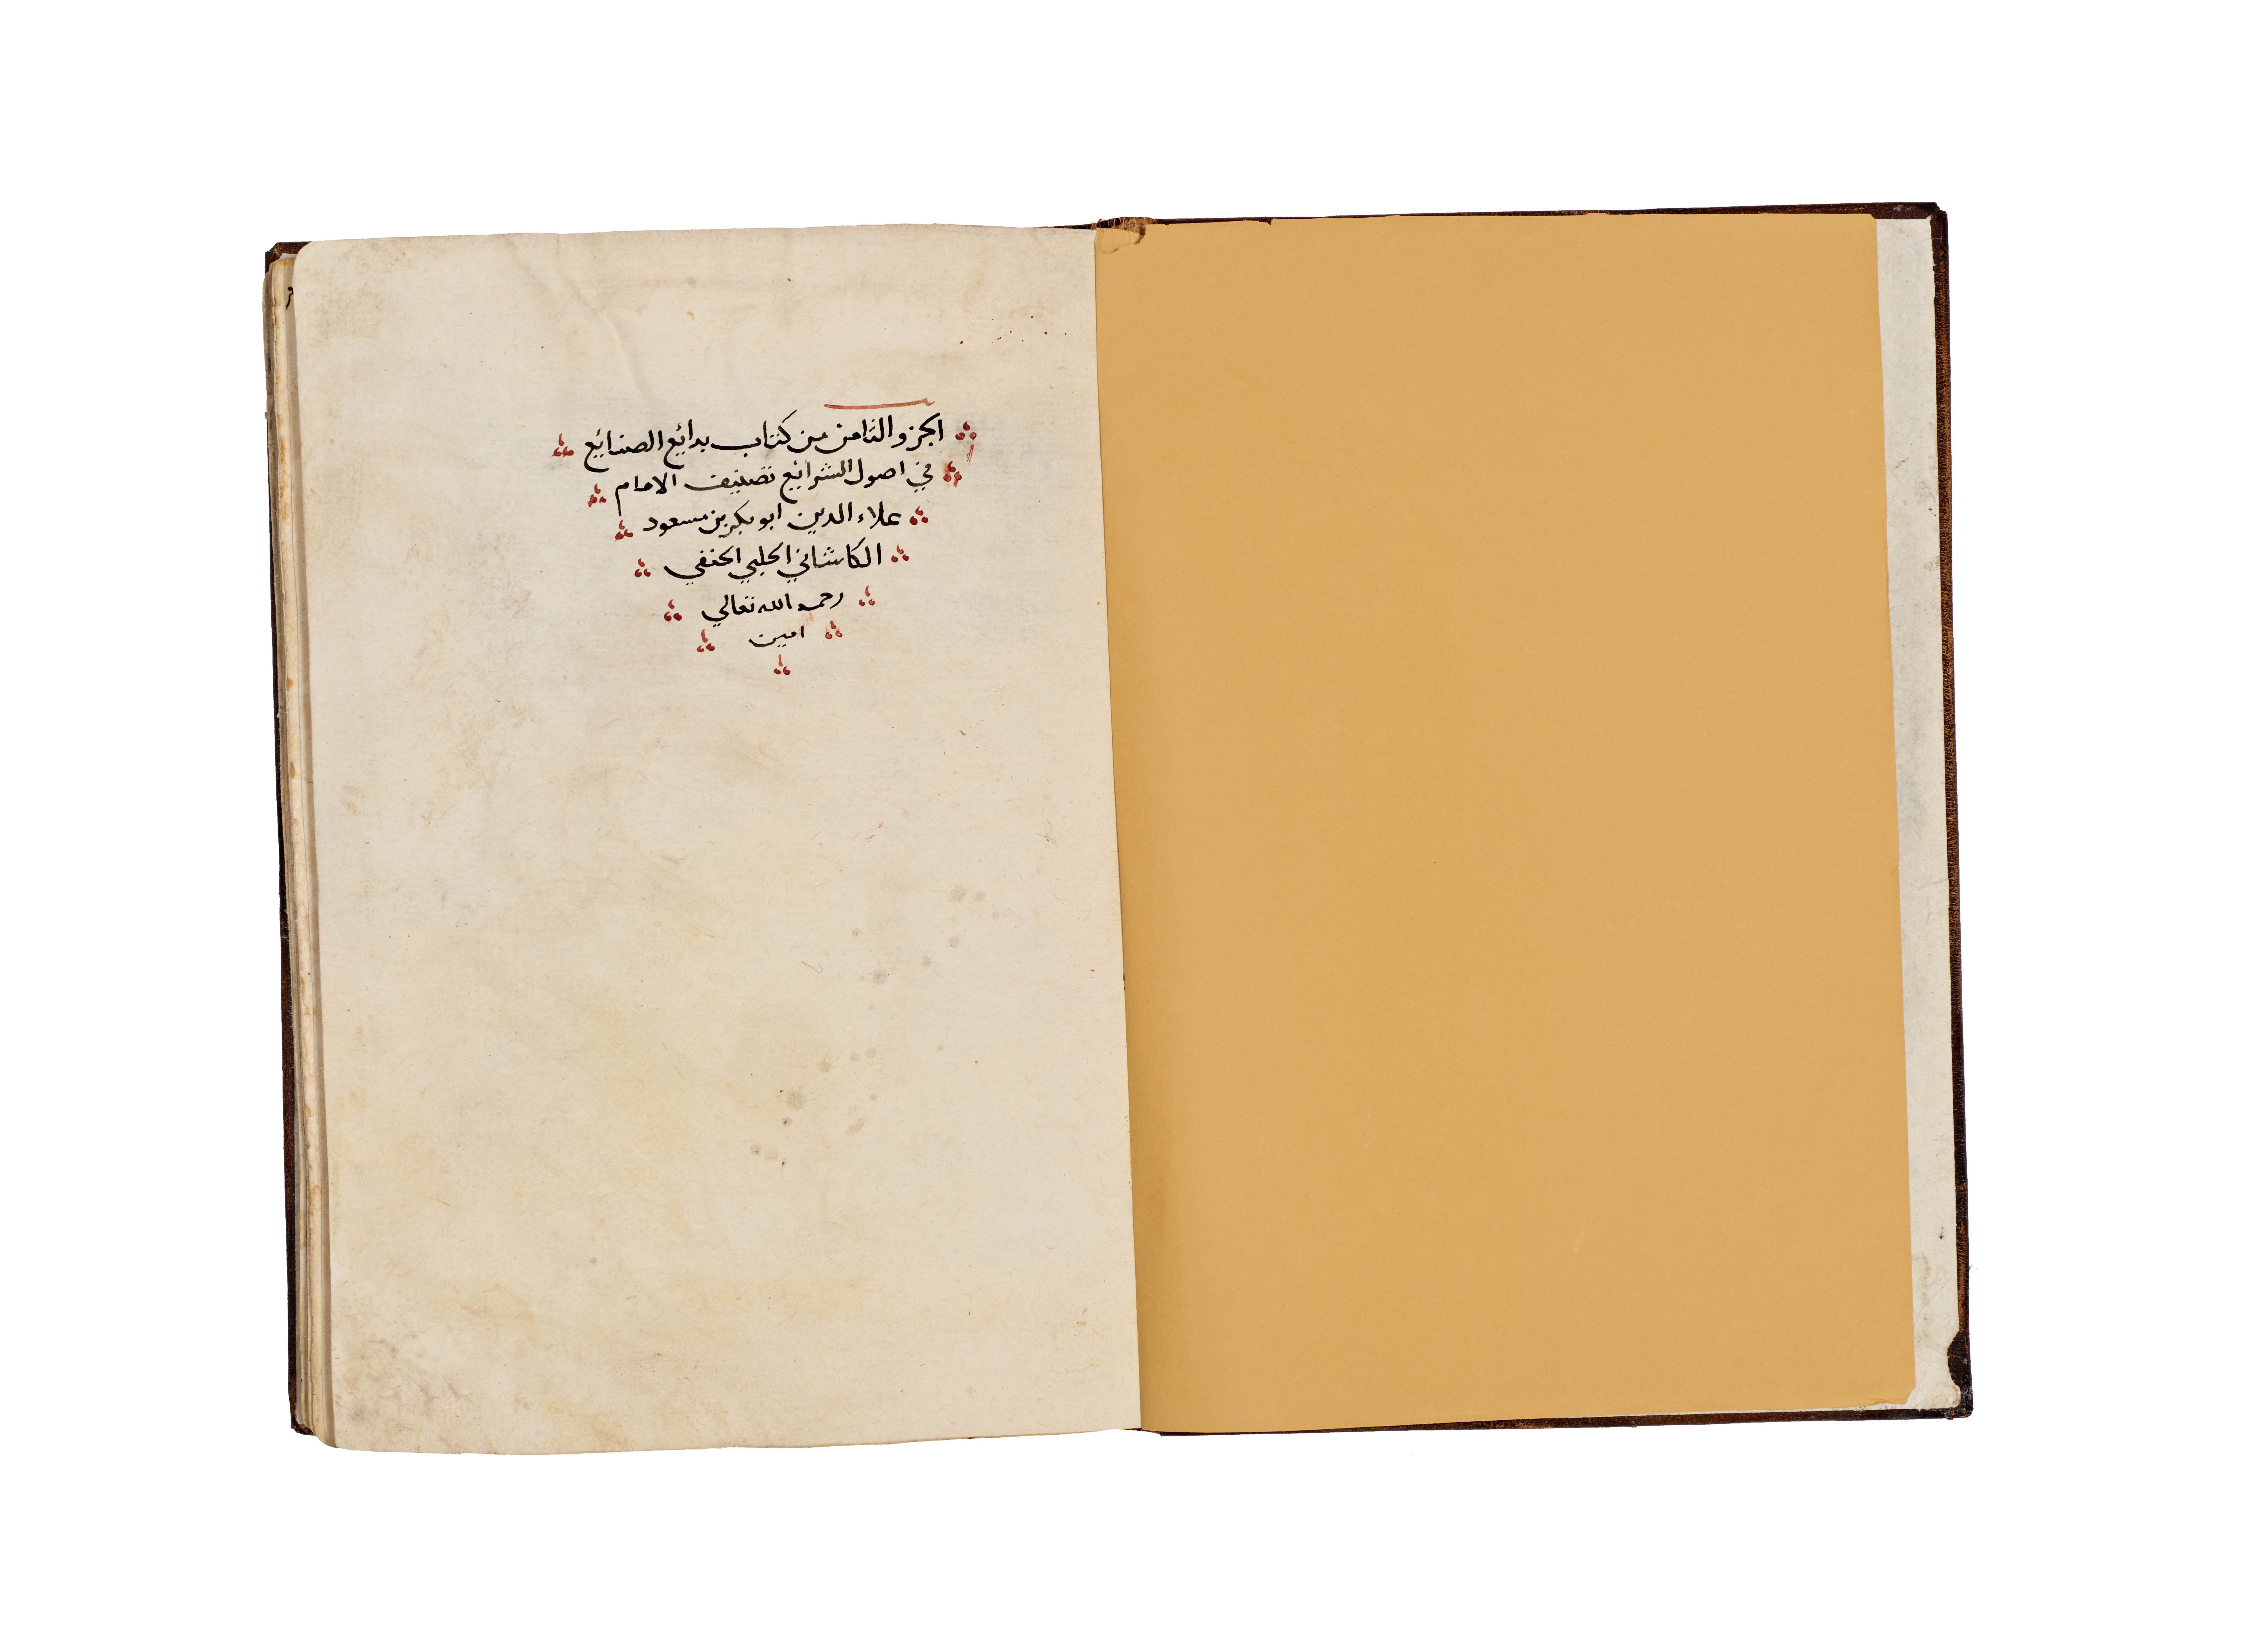 الجزو الثامن من كتاب بدائع الصنايع
في اصول الشرائع تصنيف الامام
علاء الدين ابو بكر بن مسعود
الكاشاني الحلبي الحنفي
رحمه الله تعالي
امين